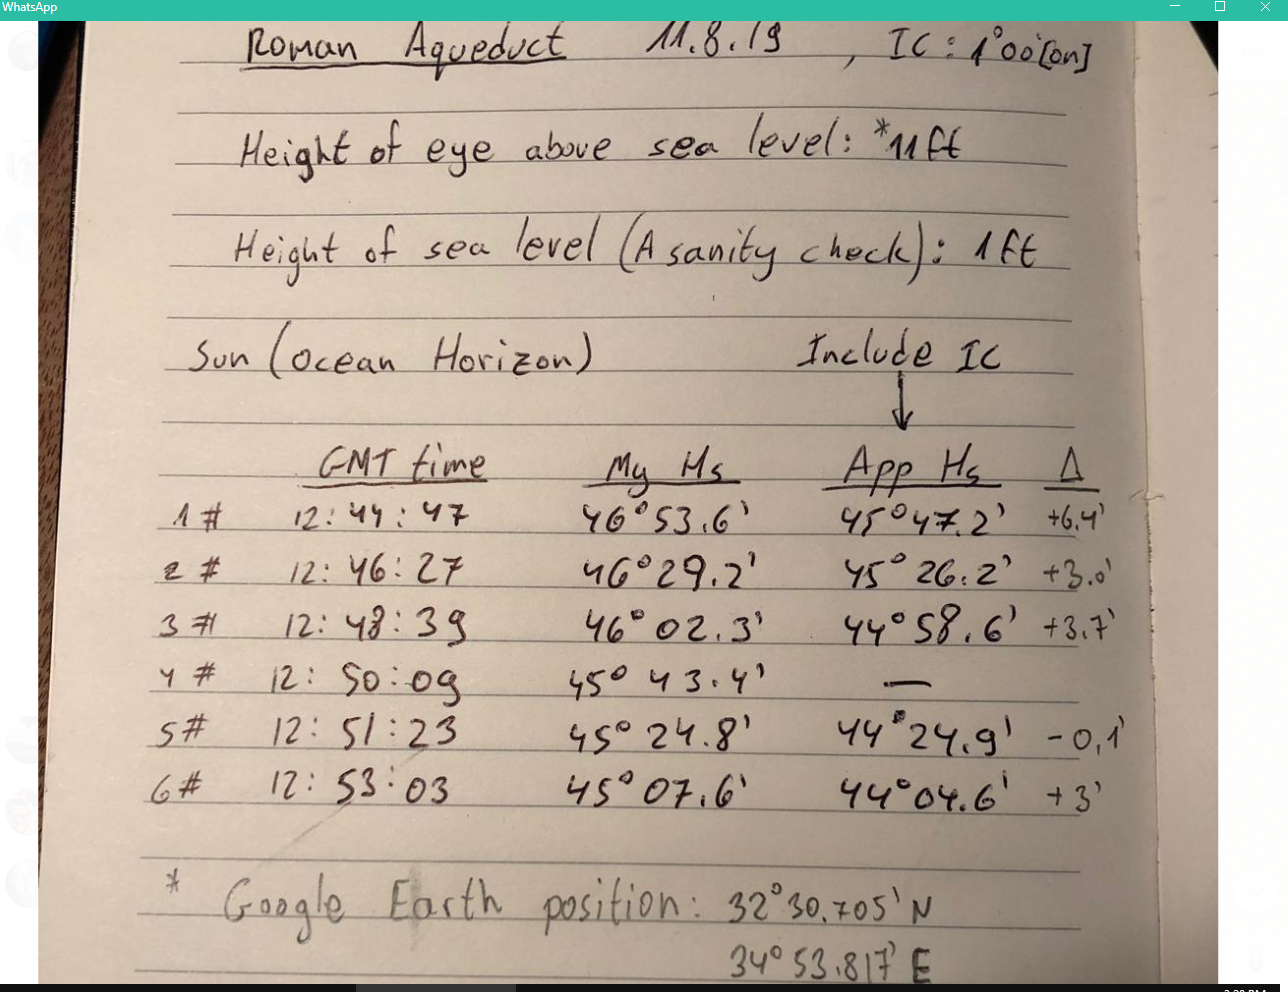 WhatsApp
Roman Aqueduct 11.8.19, IC: 1°00'[on]
Height of eye above sea level: *11ft
Height of sea level (A sanity check): 1ft
Sun (Ocean Horizon) Include IC
GMT time My Hs App Hs Δ
1# 12:44:47 46°53.6' 45°47.2' +6.4'
2# 12:46:27 46°29.2' 45°26.2' +3.0'
3# 12:48:39 46°02.3' 44°58.6' +3.7'
4# 12:50:09 45°43.4' —
5# 12:51:23 45°24.8' 44°24.9' -0,1'
6# 12:53:03 45°07.6' 44°04.6' +3'
* Google Earth position: 32°30.705' N
34°53.817' E